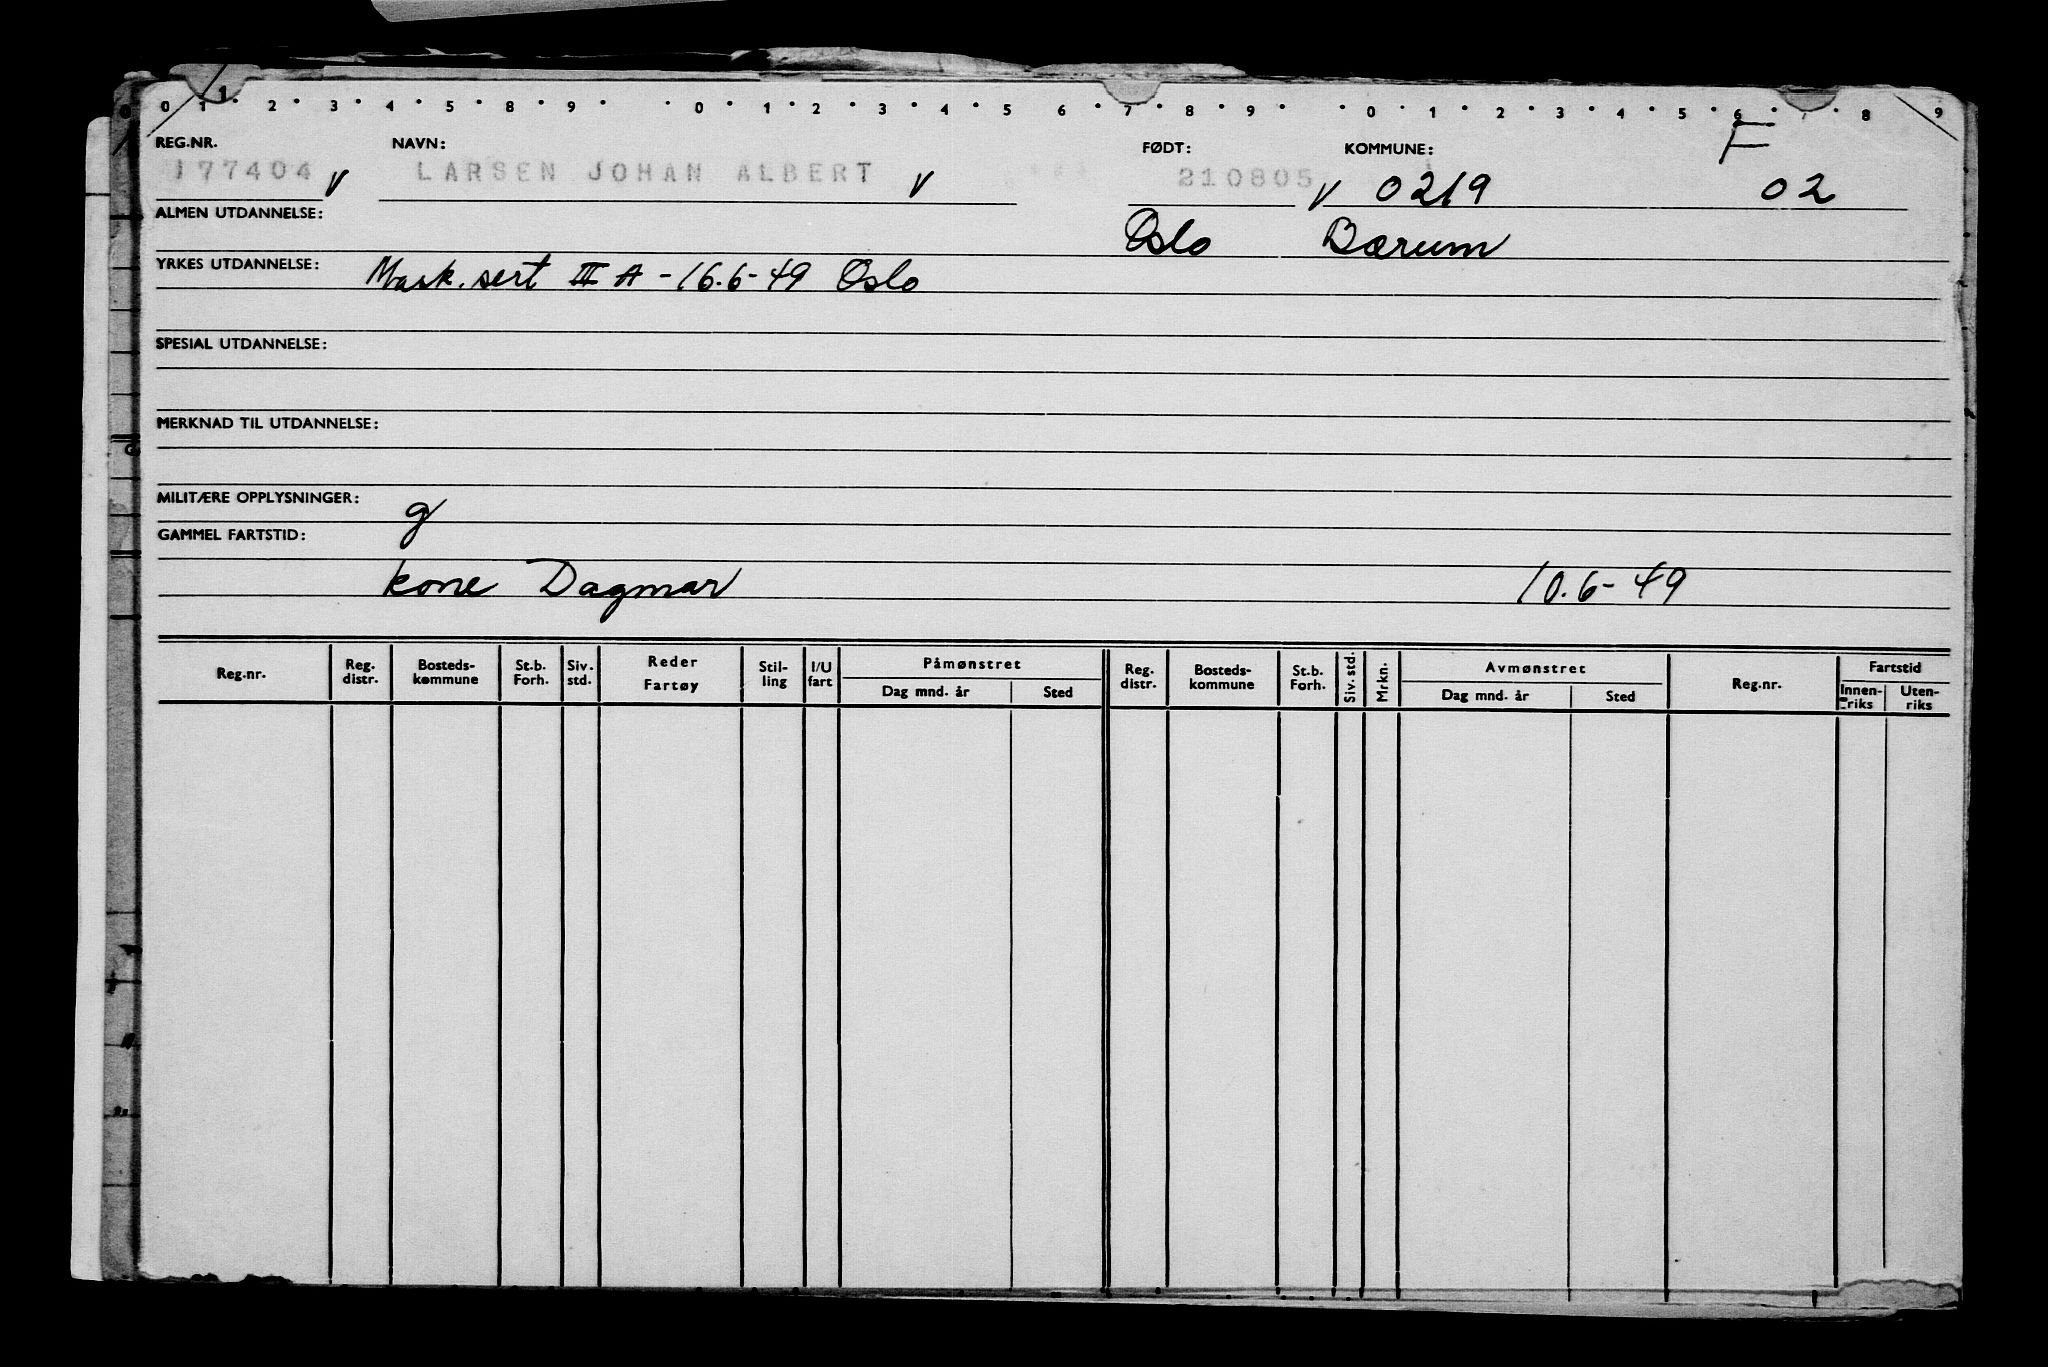 0 1 2 3 4 5 8 9 0 1 2 3 4 5 6 7 8 9 0 1 2 3 4 5 6 8 9
F
REG.NR. NAVN: FØDT: KOMMUNE:
177404 v LARSEN JOHAN ALBERT v 210805 v 0219 02
ALMEN UTDANNELSE: Oslo Bærum
YRKES UTDANNELSE: Mask. sert III A - 16.6-49 Oslo
SPESIAL UTDANNELSE:
MERKNAD TIL UTDANNELSE:
MILITÆRE OPPLYSNINGER: g
GAMMEL FARTSTID:
kone Dagmar 10.6-49
Reg.nr. Reg. distr. Bosteds-kommune St.b. Forh. Siv. std. Reder Fartøy Stil-ling I/U fart Påmønstret Dag mnd. år Sted Reg. distr. Bosteds-kommune St.b. Forh. Siv. std. Mrkn. Avmønstret Dag mnd. år Sted Reg.nr. Fartstid Innen-riks Uten-riks